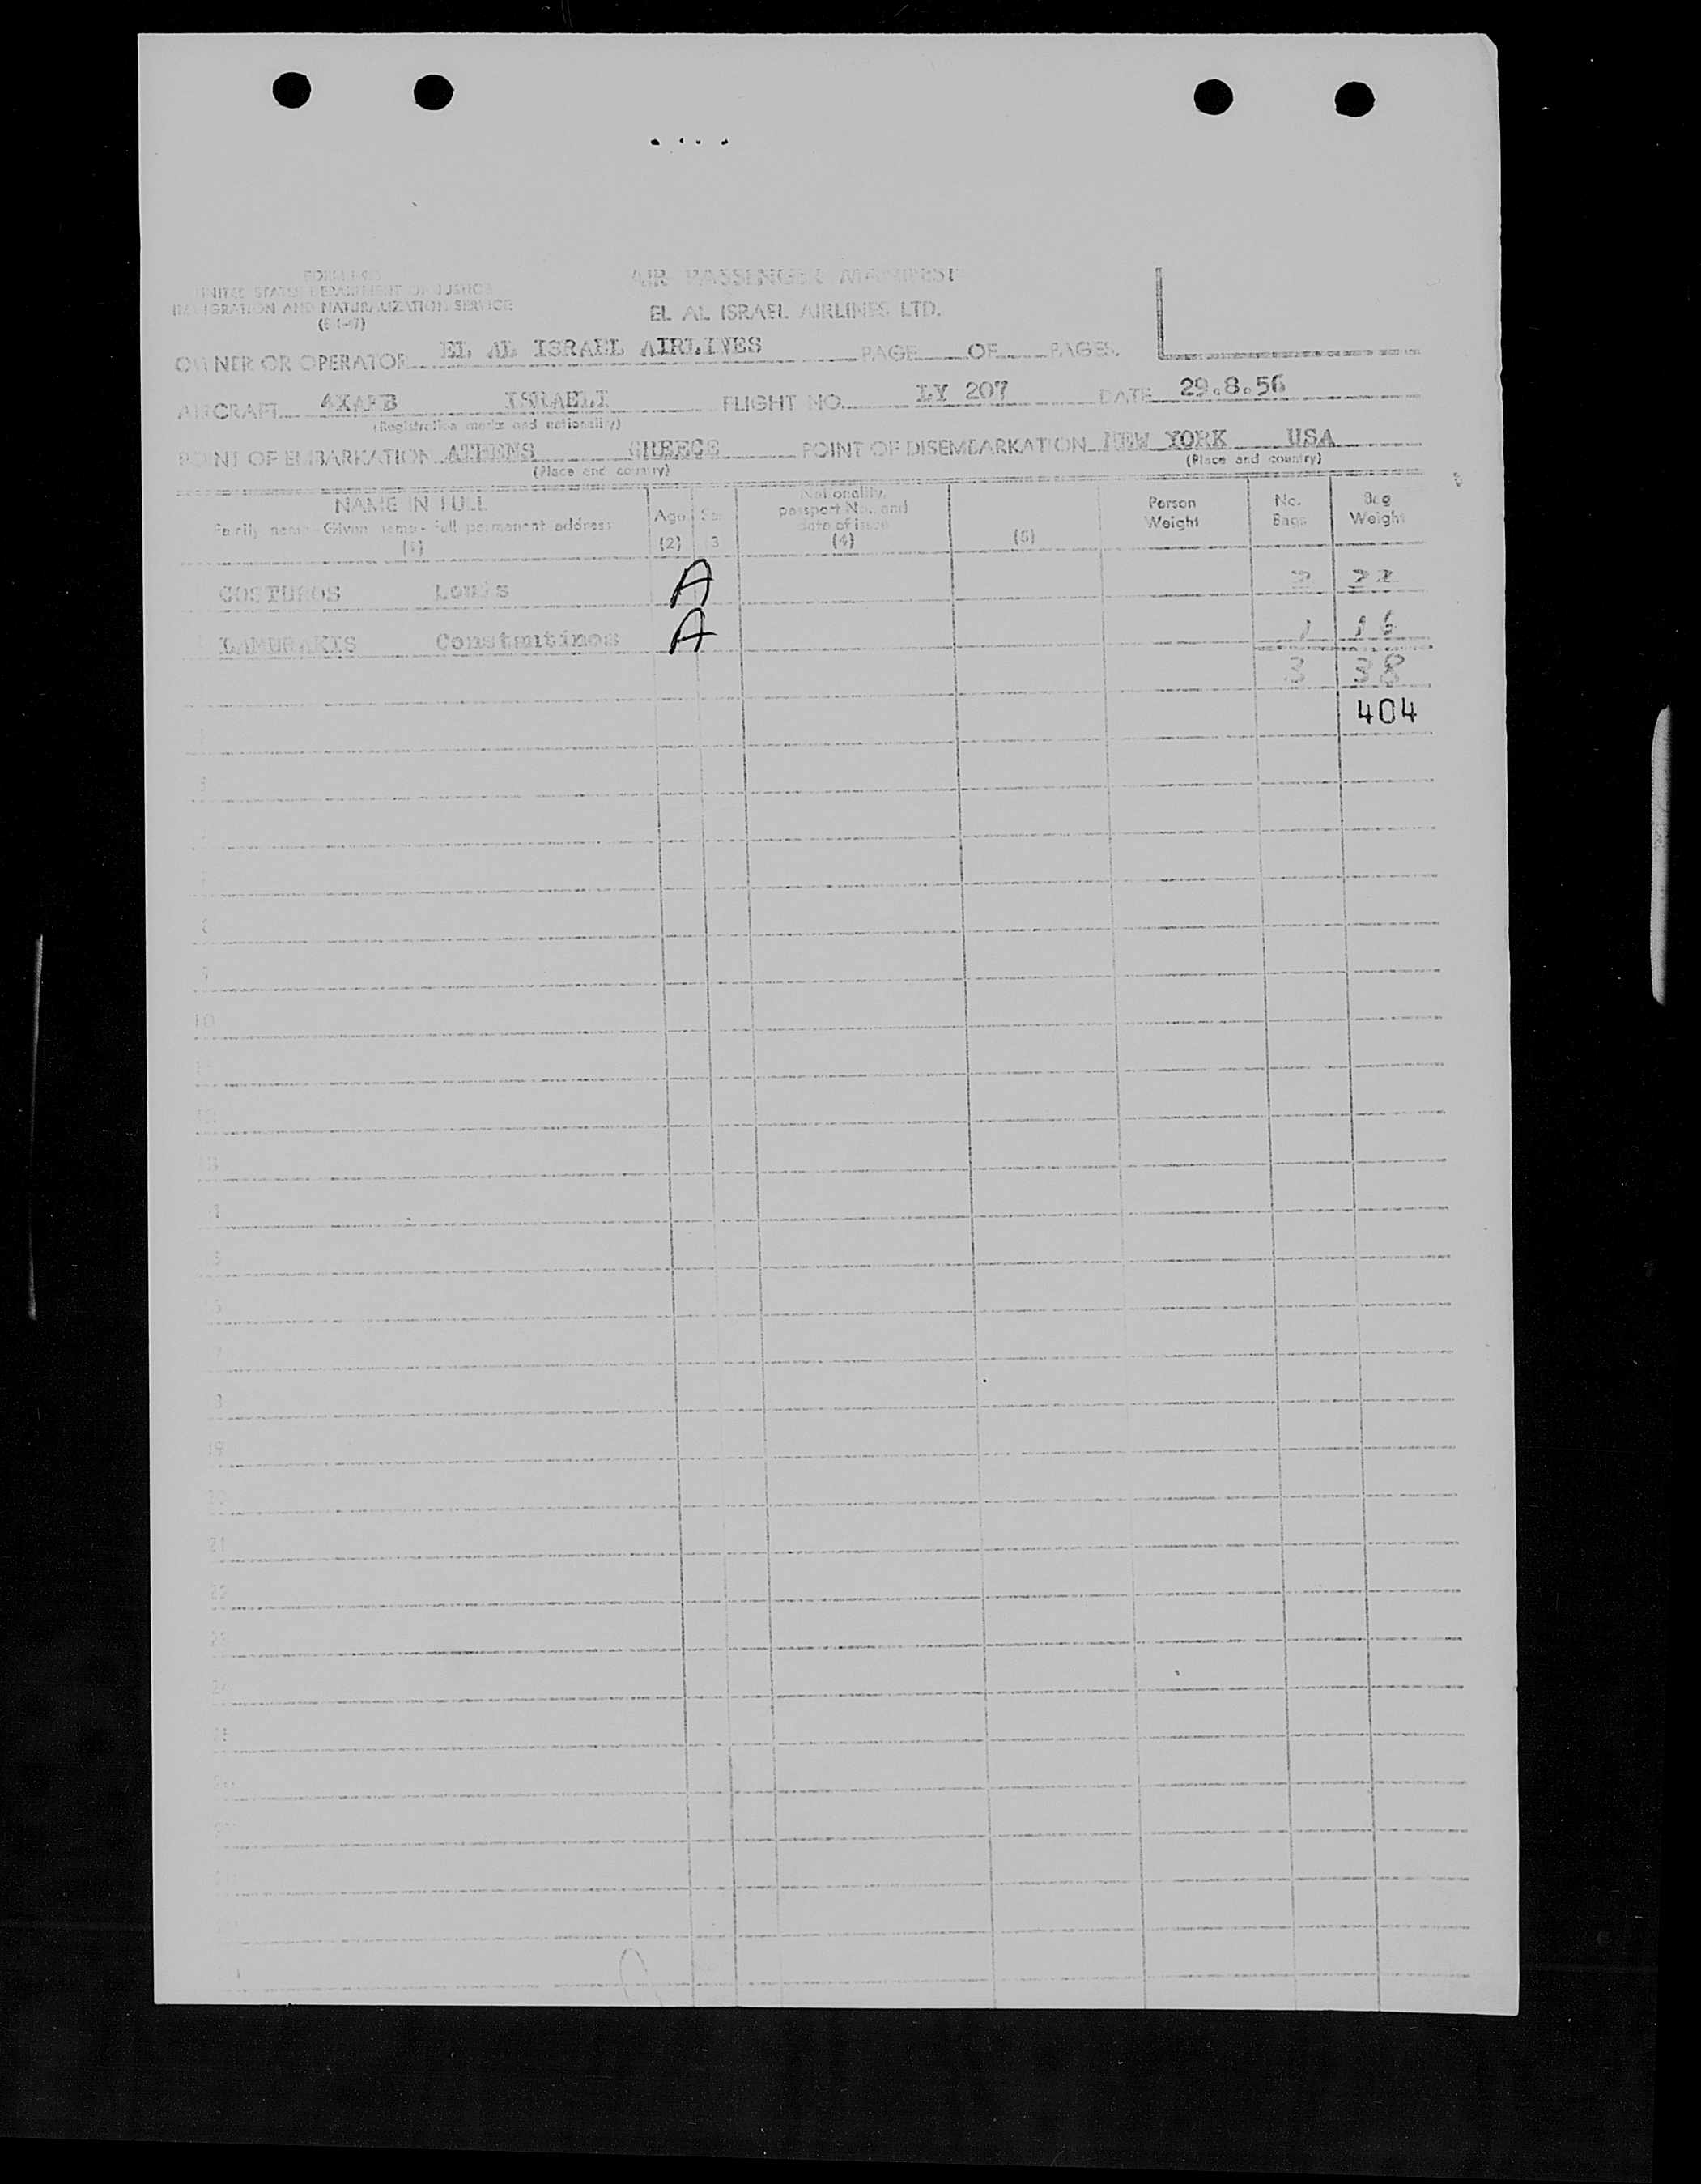 UNITED STATES DEPARTMENT OF JUSTICE
IMMIGRATION AND NATURALIZATION SERVICE
AIR PASSENGER MANIFEST
EL AL ISRAEL AIRLINES LTD.
OWNER OR OPERATOR EL AL ISRAEL AIRLINES PAGE OF PAGES
AIRCRAFT ISRAELI FLIGHT NO. LY 207 DATE 29.8.56
(Registration marks and nationality)
POINT OF EMBARKATION ATHENS GREECE POINT OF DISEMBARKATION NEW YORK USA
(Place and country) (Place and country)
NAME IN FULL Age Sex Nationality, passport No. and date of issue Person Weight No. Bags Bag Weight
Family name - Given name - Full permanent address
(1) (2) 3 (4) (5)
COSTUROS Louis A 2 22
LAMBRAKIS Constantinos A 1 16
3 38
404
8
10
19
21
22
23